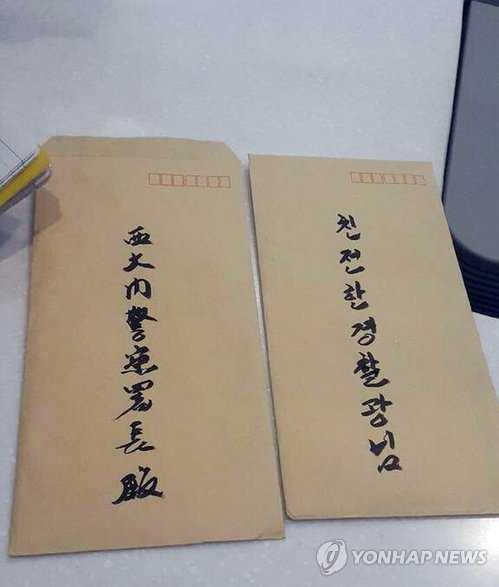 西大門警察署長殿
친전한경찰광님
YONHAP NEWS